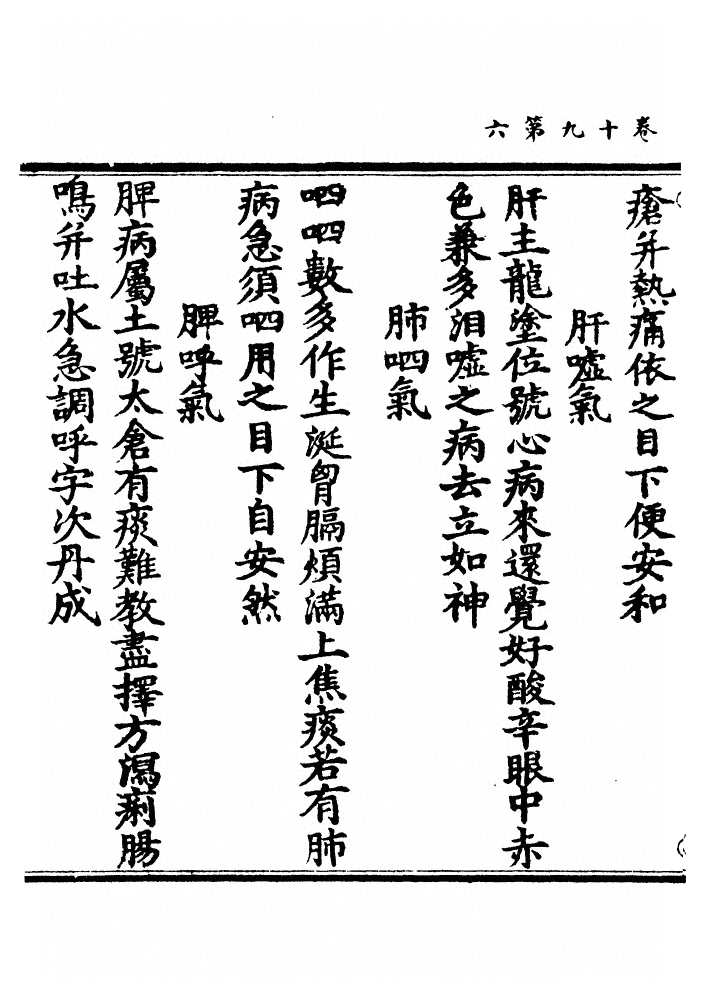 卷十九第六
瘡并熱痛依之目下便安和
肝噓氣
肝主龍塗位號心病來還覺好酸辛眼中赤
色兼多泪噓之病去立如神
肺呬氣
呬呬數多作生涎胷膈煩滿上焦痰若有肺
病急須呬用之目下自安然
脾呼氣
脾病屬土號太倉有痰難教盡擇方瀉痢腸
鳴并吐水急調呼字次丹成